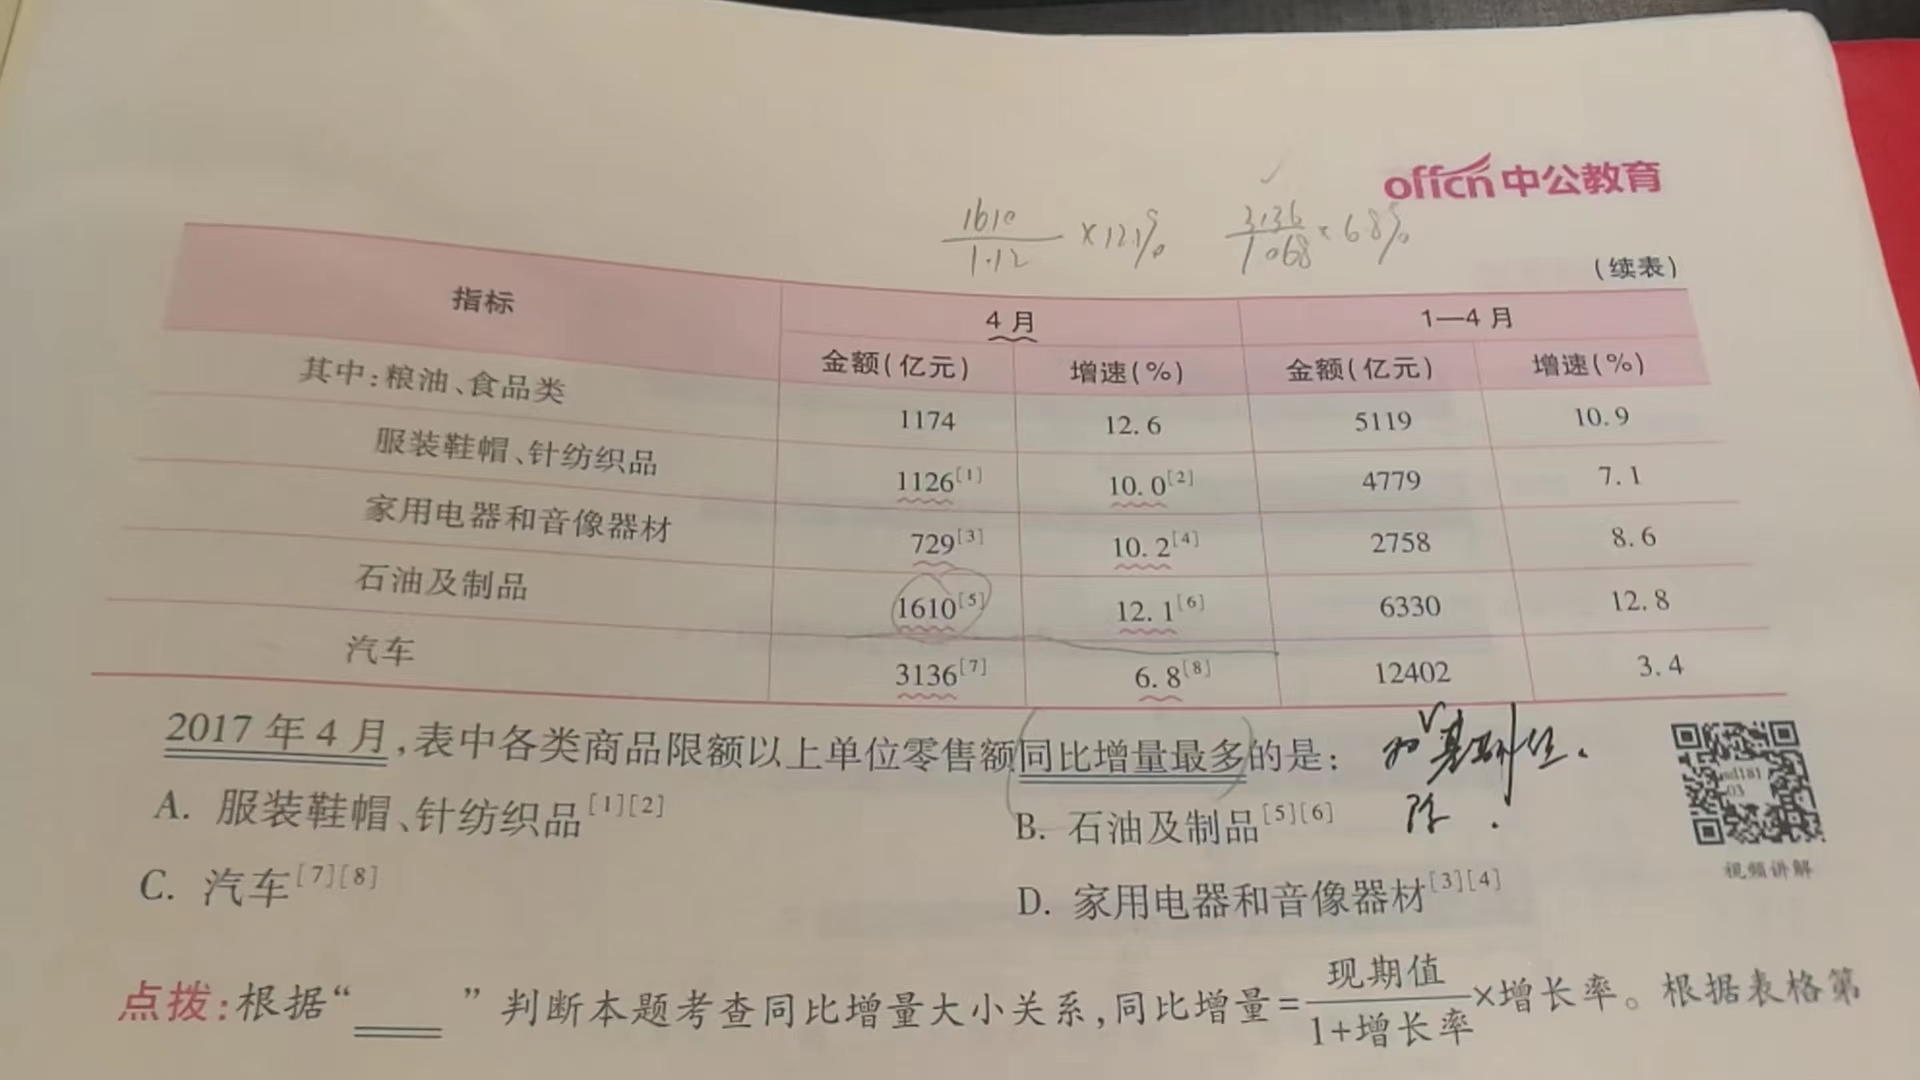 offcn中公教育
1610 3136
1.12 ×12.1% 1.068 × 6.8%
(续表)
指标 4月 1—4月
金额(亿元) 增速(%) 金额(亿元) 增速(%)
其中:粮油、食品类 1174 12.6 5119 10.9
服装鞋帽、针纺织品 1126[1] 10.0[2] 4779 7.1
家用电器和音像器材 729[3] 10.2[4] 2758 8.6
石油及制品 1610[5] 12.1[6] 6330 12.8
汽车 3136[7] 6.8[8] 12402 3.4
2017年4月,表中各类商品限额以上单位零售额同比增量最多的是:
A. 服装鞋帽、针纺织品[1][2] B. 石油及制品[5][6] 除.
C. 汽车[7][8] D. 家用电器和音像器材[3][4]
视频讲解
点拨:根据“ ”判断本题考查同比增量大小关系,同比增量=现期值/1+增长率×增长率。根据表格第